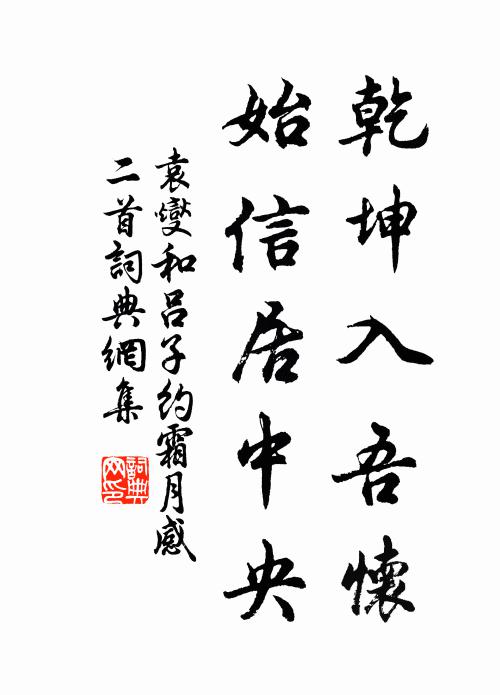 乾坤入吾懷
始信居中央
袁燮和呂子約霜月感
二首詞典網集
詞典網印